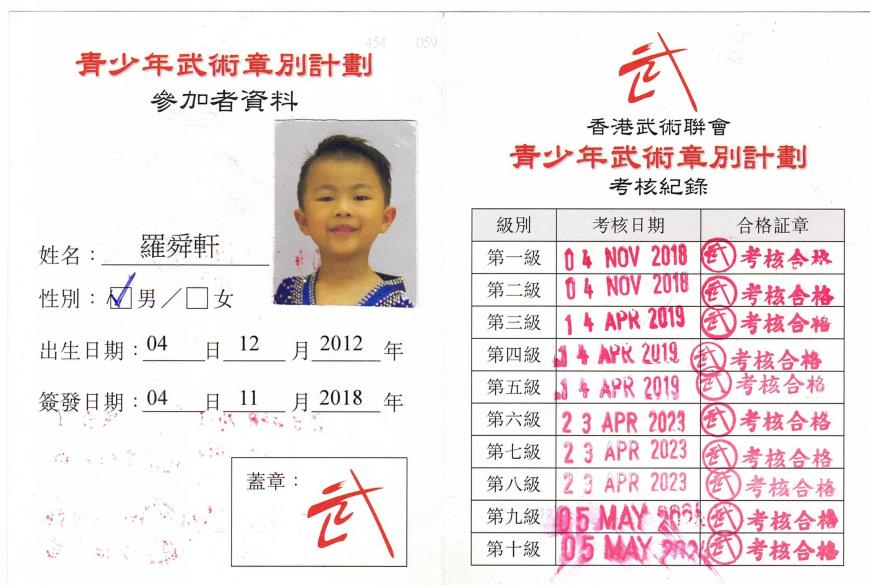 454 059
青少年武術章別計劃
參加者資料
姓名：羅舜軒
性別：男／女
出生日期：04 日 12 月 2012 年
簽發日期：04 日 11 月 2018 年
蓋章：
武
武
香港武術聯會
青少年武術章別計劃
考核紀錄
級別 考核日期 合格証章
第一級 04 NOV 2018 武 考核合格
第二級 04 NOV 2018 武 考核合格
第三級 14 APR 2019 武 考核合格
第四級 14 APR 2019 武 考核合格
第五級 14 APR 2019 武 考核合格
第六級 23 APR 2023 武 考核合格
第七級 23 APR 2023 武 考核合格
第八級 23 APR 2023 武 考核合格
第九級 05 MAY 武 考核合格
第十級 05 MAY 武 考核合格